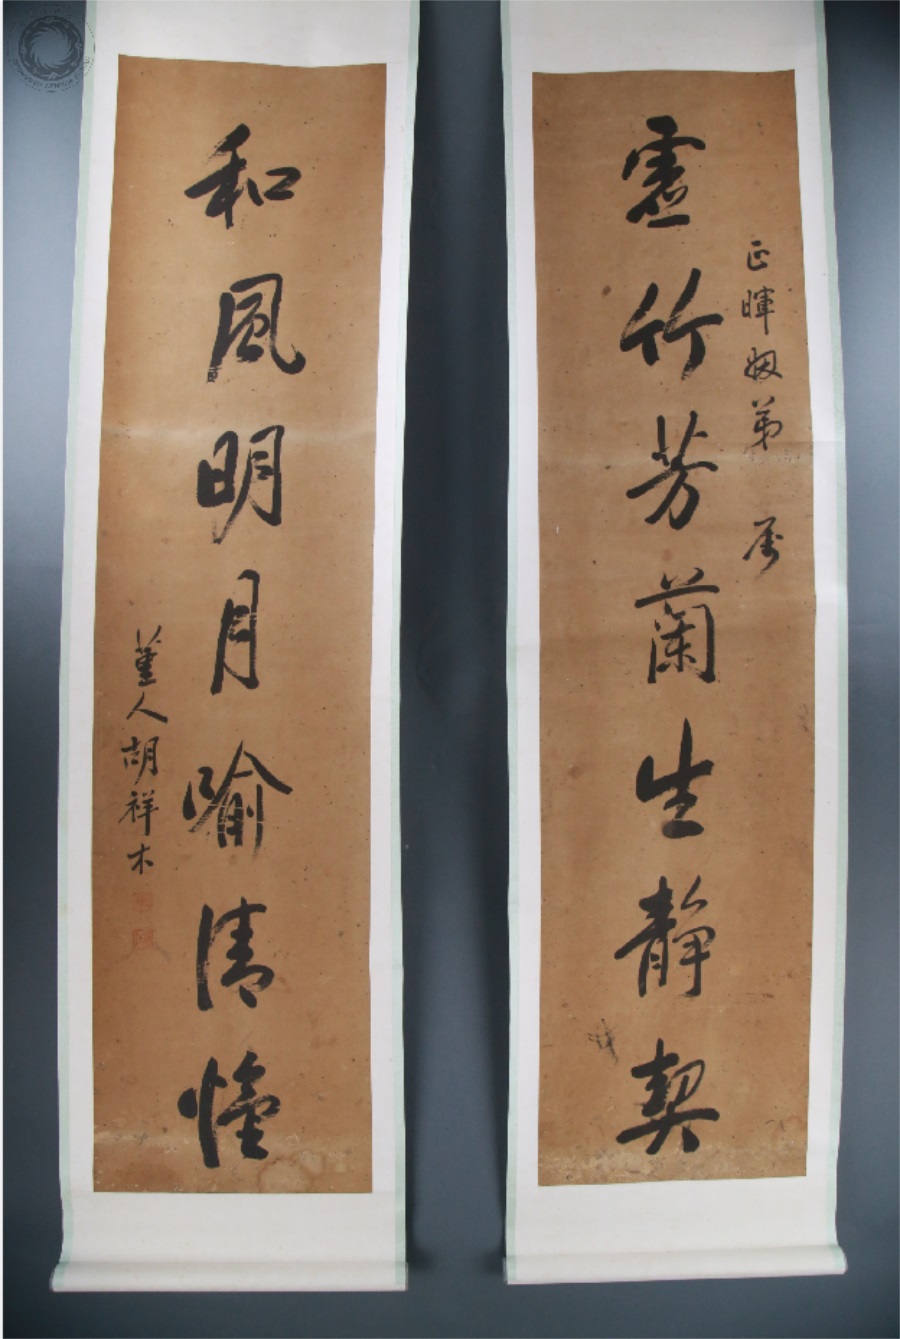 正暉姻弟 屬
虛竹芳蘭生靜契
和風明月喻清懷
堇人胡祥木